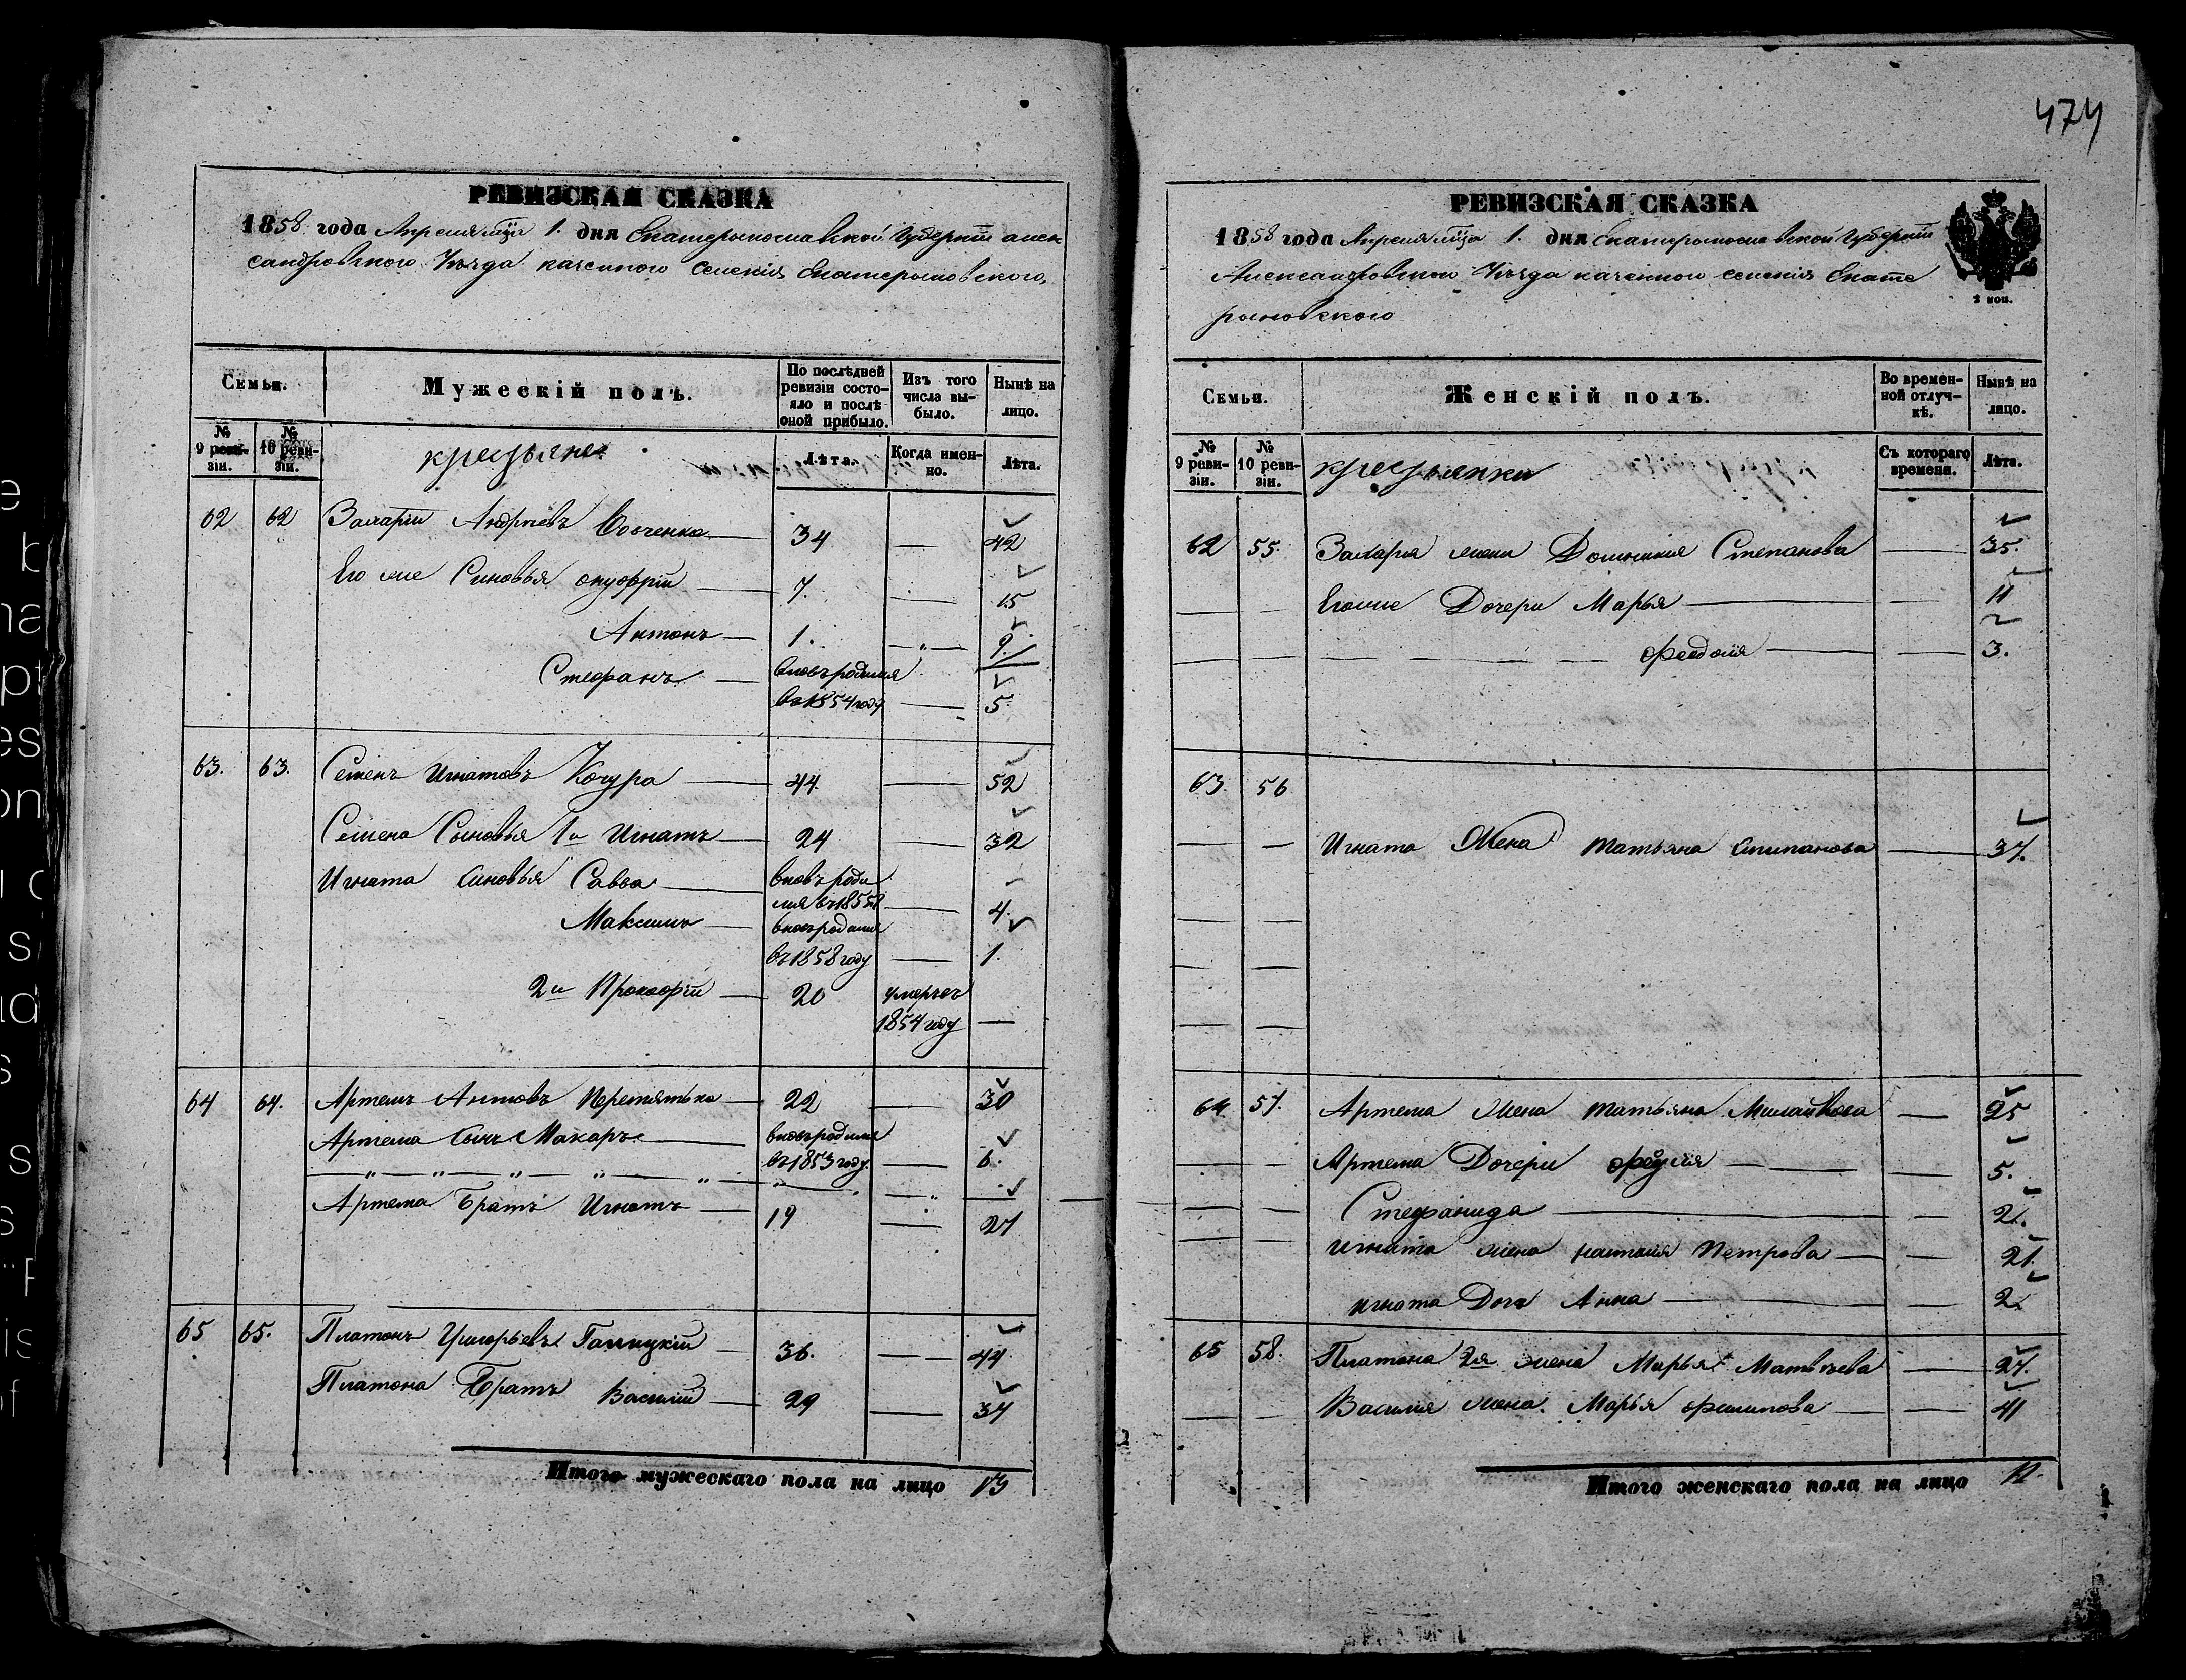 474
РЕВИЗСКАЯ СКАЗКА
1858 года Апреля мца 1. дня Екатерынославской Губернiи алек
сандровского Уезда казенного селенiя Екатерыновского,
Семьи.
Мужескiй полъ.
По послѣдней ревизiи состо-
яло и послѣ
оной прибыло.
Изъ того
числа вы-
было.
Нынѣ на
лицо.
№
9 реви-
зiи.
№
10 реви-
зiи.
крестьяне
Лѣта.
Когда имен-
но.
Лѣта.
62 62 Захарiй Андрѣевъ Вовченко 34 — 42
Его же Синовья онуфрiй 7. — 15
Антонъ 1. — 9.
Стефанъ вновьродился
въ 1854 году — 5
63. 63. Семенъ Игнатовъ Кочура 44. — 52
Семена Сыновья 1й Игнатъ 24 — 32
Игната Синовья Савва вновъ роди
лся въ 1855 — 4.
Максимъ вновьродился
въ 1858 году — 1.
2й Прокофiй 20 умеръ въ
1854 году —
64 64. Артемъ Антовъ Перетятько 22 — 30
Артема сынъ Макаръ вновьродился
въ 1853 году. — 6.
Артема Братъ Игнатъ 19 — 27
65 65. Платонъ Григорьевъ Галицкiй 36. — 44
Платона Братъ Василiй 29 — 37
Итого мужескаго пола на лицо 13
РЕВИЗСКАЯ СКАЗКА
1858 года Апреля мца 1. дня Екатерынославской Губернiи
Александровского Уезда казенного селенiя Екате
рыновского
2 коп.
Семьи.
Женскiй полъ.
Во времен-
ной отлуч-
кѣ.
Нынѣ на
лицо.
№
9 реви-
зiи.
№
10 реви-
зiи.
крестьянки
Съ котораго
времени.
Лѣта.
62 55. Захарiя жена Домникiя Степанова — 35.
Егоже Дочери Марья — 11
феодосiя — 3.
63. 56
Игната Жена татьяна Степанова — 37.
64. 57. Артема Жена татьяна Михайлова — 25
Артема Дочери — 5.
Стефанида — 2.
игната жена наталiя Петрова — 21.
игната Дочь Анна — 2.
65 58. Платона 2я жена Марья Матвѣева — 27.
Василiя жена. Марья филипова — 41
Итого женскаго пола на лицо 12.